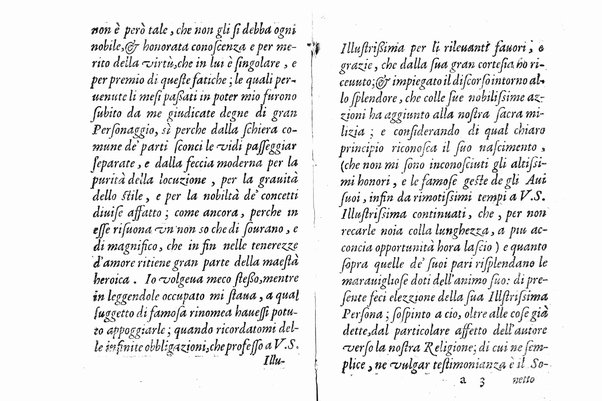 non è però tale, che non gli si debba ogni
nobile, & honorata conoscenza e per me-
rito della virtù, che in lui è singolare, e
per premio di queste fatiche; le quali per-
uenute li mesi passati in poter mio furono
subito da me giudicate degne di gran
Personaggio, sì perche dalla schiera co-
mune de' parti sconci le vidi passeggiar
separate, e dalla feccia moderna per la
purità della locuzione, per la grauità
dello stile, e per la nobiltà de' concetti
diuise affatto; come ancora, perche in
esse risuona vn non so che di sourano, e
di magnifico, che in fin nelle tenerezze
d'amore ritiene gran parte della maestà
heroica. Io volgeua meco stesso, mentre
in leggendole occupato mi staua, a qual
suggetto di famosa rinomea hauessi potu-
to appoggiarle; quando ricordatomi del-
le infinite obbligazioni, che professo a V.S.
Illu-
Illustrissima per li rileuanti fauori, e
grazie, che dalla sua gran cortesia ho ri-
ceuuto; & impiegato il discorso intorno al-
lo splendore, che colle sue nobilissime az-
zioni ha aggiunto alla nostra sacra mi-
lizia; e considerando di qual chiaro
principio riconosca il suo nascimento,
(che non mi sono inconosciuti gli altissi-
mi honori, e le famose geste de gli Aui
suoi, infin da rimotissimi tempi a V.S.
Illustrissima continuati, che, per non
recarle noia colla lunghezza, a piu ac-
concia opportunità hora lascio) e quanto
sopra quelle de' suoi pari risplendano le
marauigliose doti dell'animo suo: di pre-
sente feci elezzione della sua Illstrissima
Persona; sospinto a cio, oltre alle cose già
dette, dal particolare affetto dell'autore
verso la nostra Religione; di cui ne sem-
plice, ne vulgar testimonianza è il So-
a 3 netto